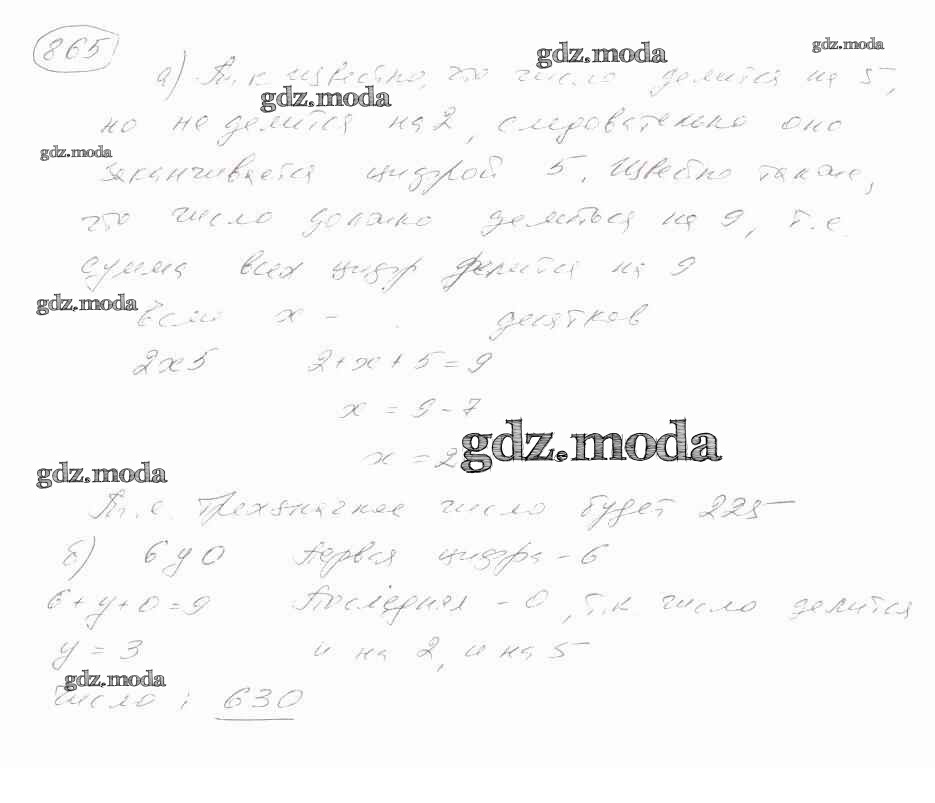 865
gdz.moda
gdz.moda
а) Т.к известно, что число делится на 5,
gdz.moda
но не делится на 2, следовательно оно
gdz.moda
заканчивается цифрой 5. Известно также,
что число должно делиться на 9, т.е.
сумма всех цифр делится на 9
gdz.moda
Если x - десятков
2x5 2+x+5=9
x = 9-7
gdz.moda
x = 2
gdz.moda
Т.е. трехзначное число будет 225
б) 6y0 Первая цифра - 6
6+y+0=9 Последняя - 0, т.к. число делится
y = 3 и на 2, и на 5
gdz.moda
Число: 630